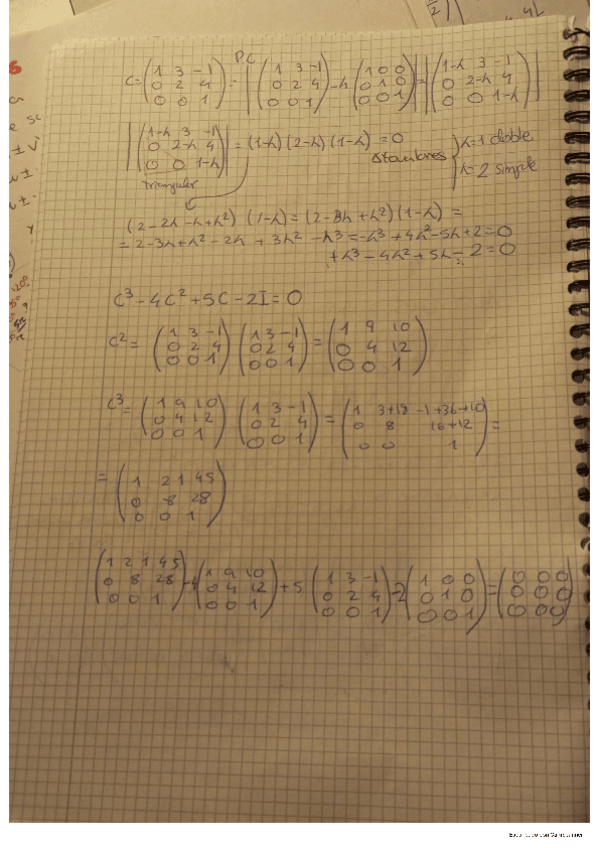 C = (1 3 -1; 0 2 4; 0 0 1) = P.C |(1 3 -1; 0 2 4; 0 0 1) - λ (1 0 0; 0 1 0; 0 0 1)| = |(1-λ 3 -1; 0 2-λ 4; 0 0 1-λ)|
|(1-λ 3 -1; 0 2-λ 4; 0 0 1-λ)| = (1-λ)(2-λ)(1-λ) = 0 λ=1 doble
λ=2 simple
triangular
(2-2λ-λ+λ²)(1-λ) = (2-3λ+λ²)(1-λ) =
= 2-3λ+λ²-2λ+3λ²-λ³ = -λ³+4λ²-5λ+2=0
+λ³-4λ²+5λ-2=0
C³-4C²+5C-2I=0
C² = (1 3 -1; 0 2 4; 0 0 1) (1 3 -1; 0 2 4; 0 0 1) = (1 9 10; 0 4 12; 0 0 1)
C³ = (1 9 10; 0 4 12; 0 0 1) (1 3 -1; 0 2 4; 0 0 1) = (1 3+18 -1+36+10; 0 8 16+12; 0 0 1) =
= (1 21 45; 0 8 28; 0 0 1)
(1 21 45; 0 8 28; 0 0 1) -4 (1 9 10; 0 4 12; 0 0 1) +5 (1 3 -1; 0 2 4; 0 0 1) -2 (1 0 0; 0 1 0; 0 0 1) = (0 0 0; 0 0 0; 0 0 0)